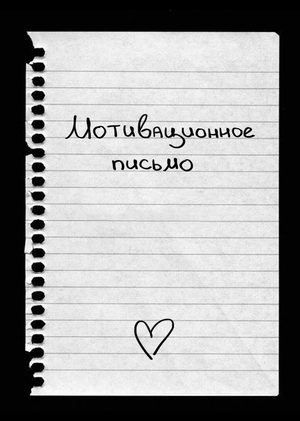 Мотивационное
письмо